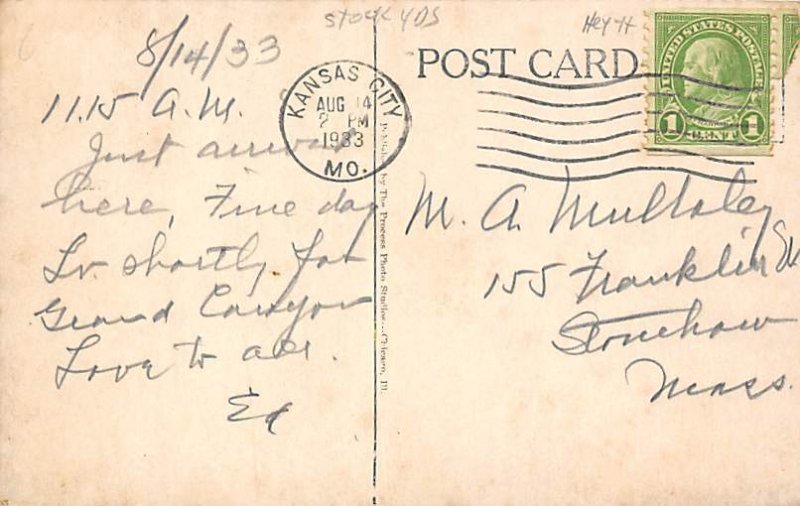 STOCK YDS
8/14/33
11.15 A.M.
Just arrived
here, Fine day
Lv. shortly for
Grand Canyon
Love to all.
Ed
KANSAS CITY
AUG 14
2 PM
1933
MO.
Published by The Process Photo Studios--Chicago, Ill.
POST CARD
UNITED STATES POSTAGE
1 CENT 1
M. A.
155 Franklin St
Stoneham
Mass.